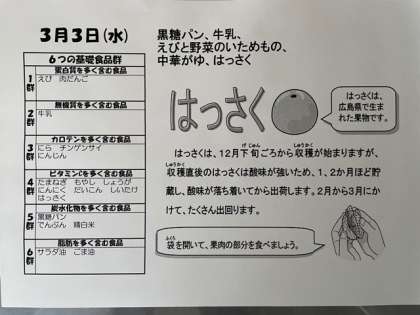 3月3日(水)
6つの基礎食品群
1群
蛋白質を多く含む食品
えび 肉だんご
2群
無機質を多く含む食品
牛乳
3群
カロテンを多く含む食品
にら チンゲンサイ
にんじん
4群
ビタミンCを多く含む食品
たまねぎ もやし しょうが
にんにく だいこん しいたけ
はっさく
5群
炭水化物を多く含む食品
黒糖パン
でんぷん 精白米
6群
脂肪を多く含む食品
サラダ油 ごま油
黒糖パン、牛乳、
えびと野菜のいためもの、
中華がゆ、はっさく
はっさく
はっさくは、
広島県で生ま
れた果物です。
はっさくは、12月下旬ごろから収穫が始まりますが、
収穫直後のはっさくは酸味が強いため、1、2か月ほど貯
蔵し、酸味が落ち着いてから出荷します。2月から3月にか
けて、たくさん出回ります。
袋を開いて、果肉の部分を食べましょう。